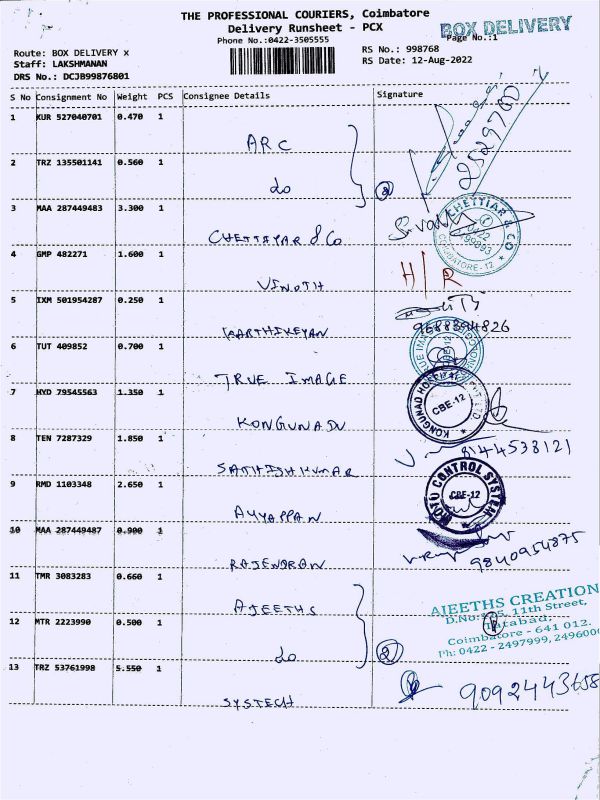 THE PROFESSIONAL COURIERS, Coimbatore
Delivery Runsheet - PCX
BOX DELIVERY
Phone No.:0422-3505555
Page No.:1
Route: BOX DELIVERY x
RS No.: 998768
Staff: LAKSHMANAN
RS Date: 12-Aug-2022
DRS No.: DCJB99876801
S No Consignment No Weight PCS Consignee Details Signature
1 KUR 527040701 0.470 1 ARC
2529700
2 TRZ 135501141 0.560 1 do
3 MAA 287449483 3.300 1 CHETTIYAR & Co
CHETTIAR & CO
0422
COIMBATORE-12
4 GMP 482271 1.600 1 VINOTH
H/R
5 IXM 501954287 0.250 1 KARTHIKEYAN
9688394826
6 TUT 409852 0.700 1 TRUE IMAGE
7 HYD 79545563 1.350 1 KONGUNADU
KONGUNAD HOSPITAL PVT LTD
CBE-12
8 TEN 7287329 1.850 1 SATHISHKUMAR
8144538121
9 RMD 1103348 2.650 1 AYYAPPAN
MOTO CONTROL SYSTEM
CBE-12
10 MAA 287449487 0.900 1 RAJENDRAN
9840954875
11 TMR 3083283 0.660 1 AJEETHS
AJEETHS CREATION
11th Street,
Tatabad,
12 MTR 2223990 0.500 1 do
2
Coimbatore - 641 012.
Ph: 0422 - 2497999, 249600
13 TRZ 53761998 5.550 1 SYSTECH
9092443658